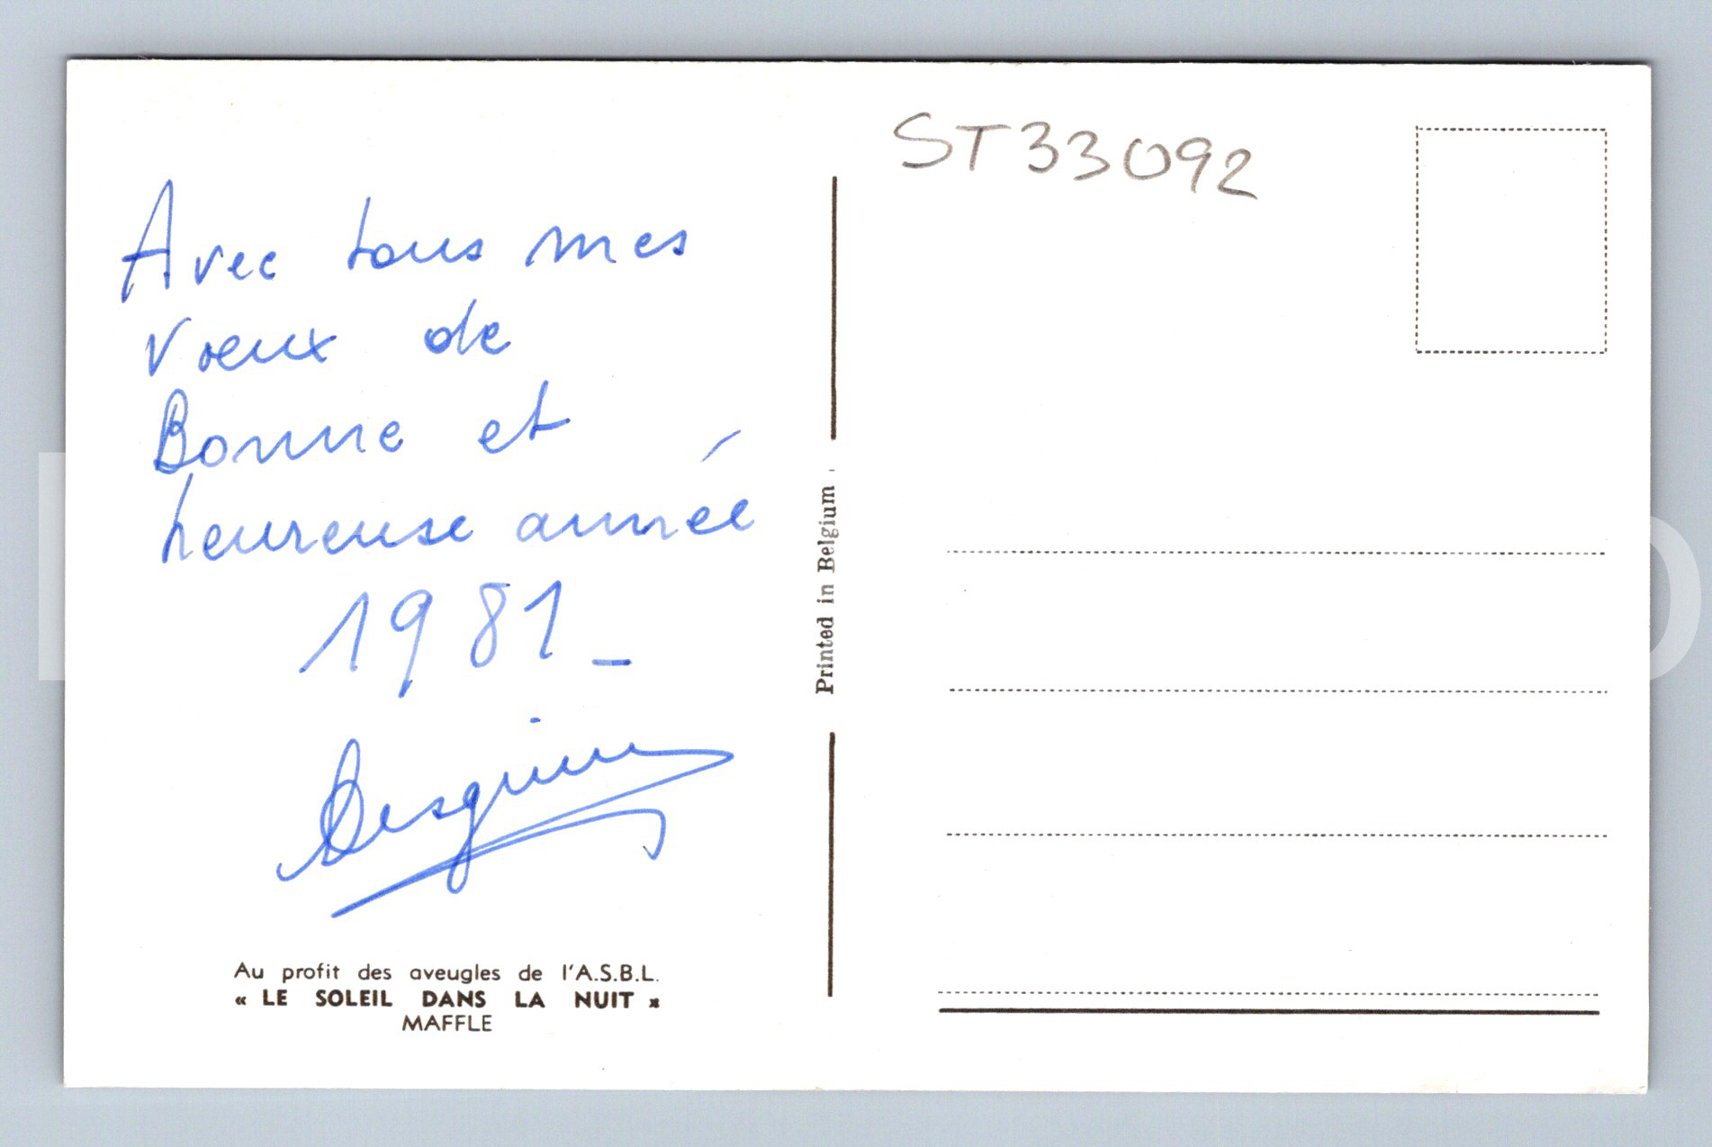 Avec tous mes
vœux de
Bonne et
heureuse année
1981 _
Au profit des aveugles de l'A.S.B.L.
« LE SOLEIL DANS LA NUIT »
MAFFLE
Printed in Belgium
ST33092